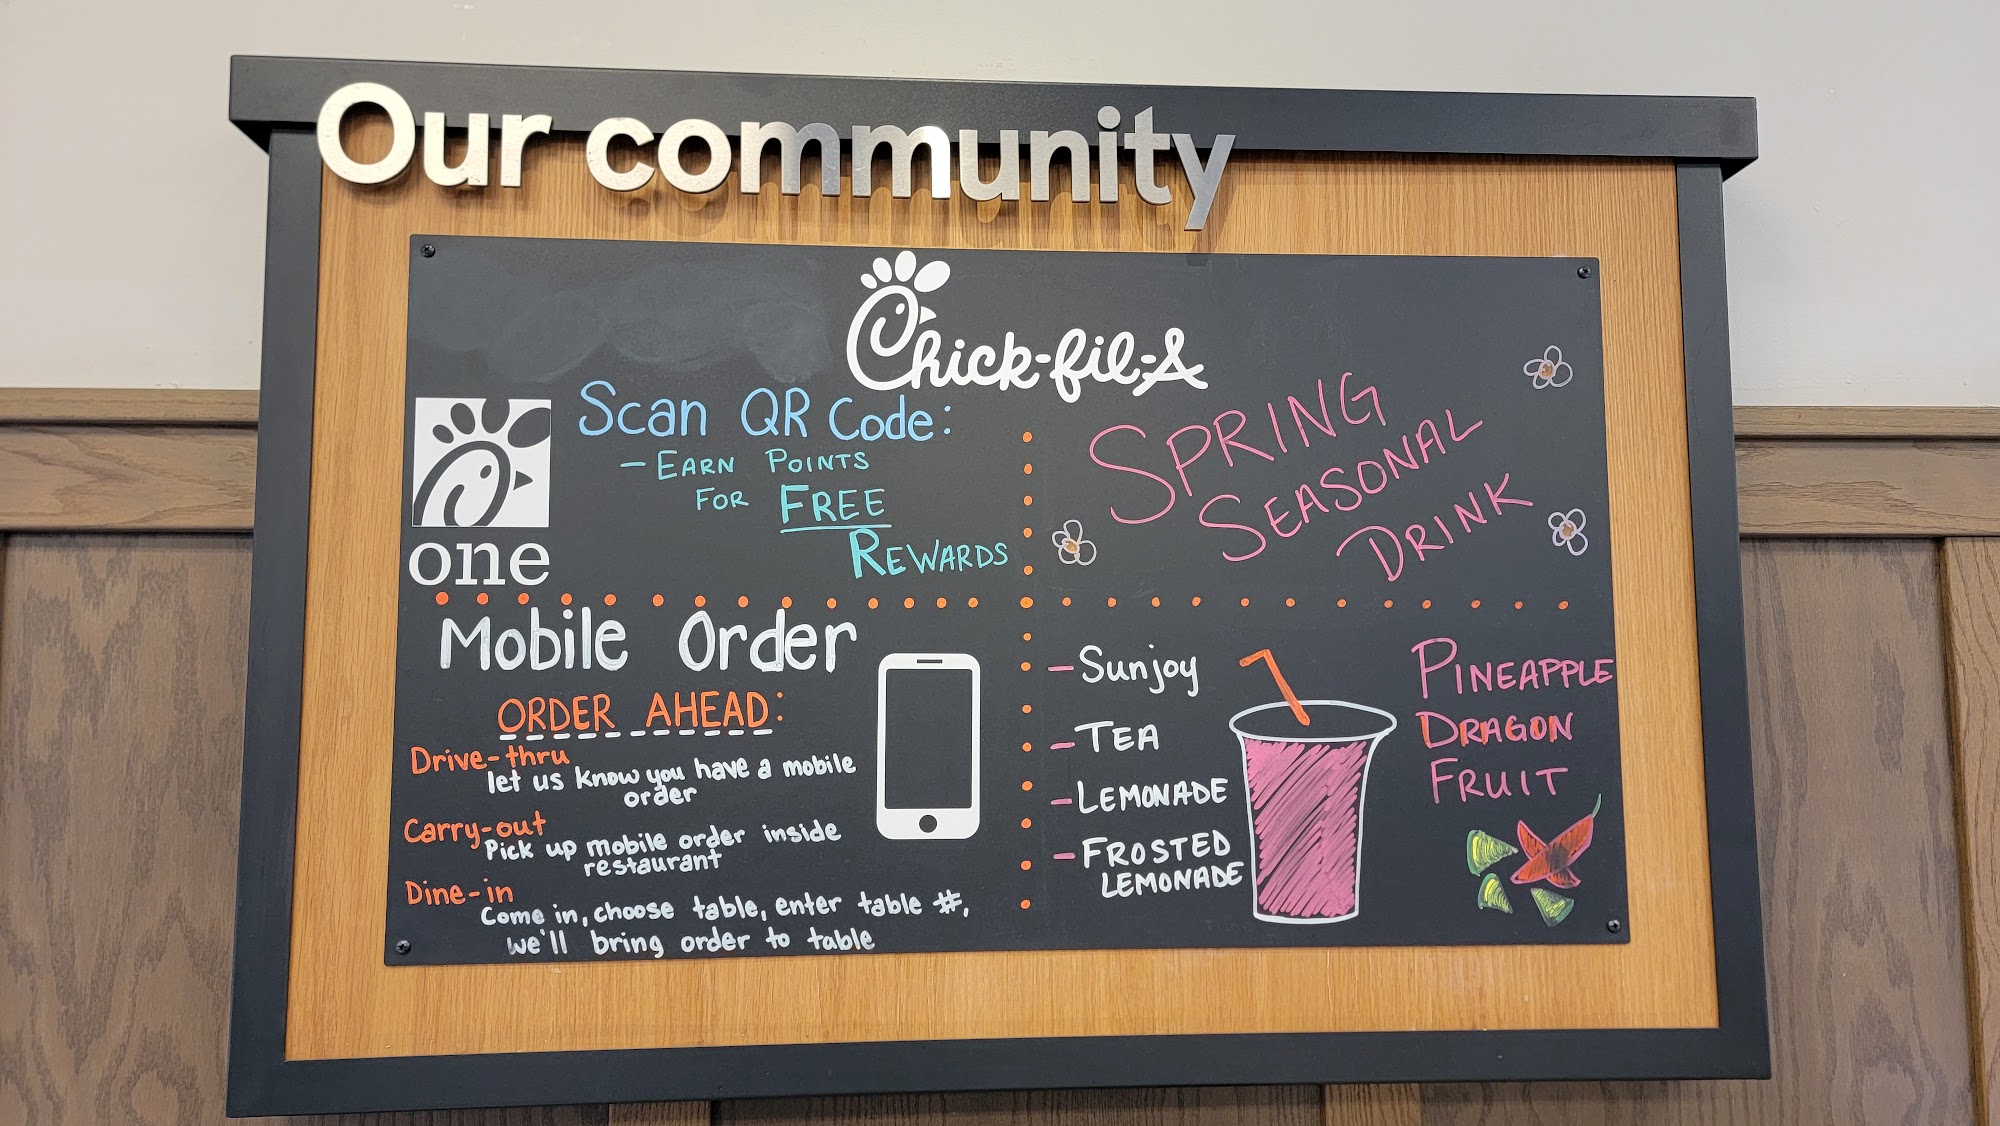 Our community
Chick-fil-A
one
Scan QR Code:
- EARN POINTS
FOR FREE
REWARDS
SPRING
SEASONAL
DRINK
Mobile Order
ORDER AHEAD:
Drive-thru
let us know you have a mobile
order
Carry-out
Pick up mobile order inside
restaurant
Dine-in
Come in, choose table, enter table #,
we'll bring order to table
- Sunjoy
- TEA
- LEMONADE
- FROSTED
LEMONADE
PINEAPPLE
DRAGON
FRUIT